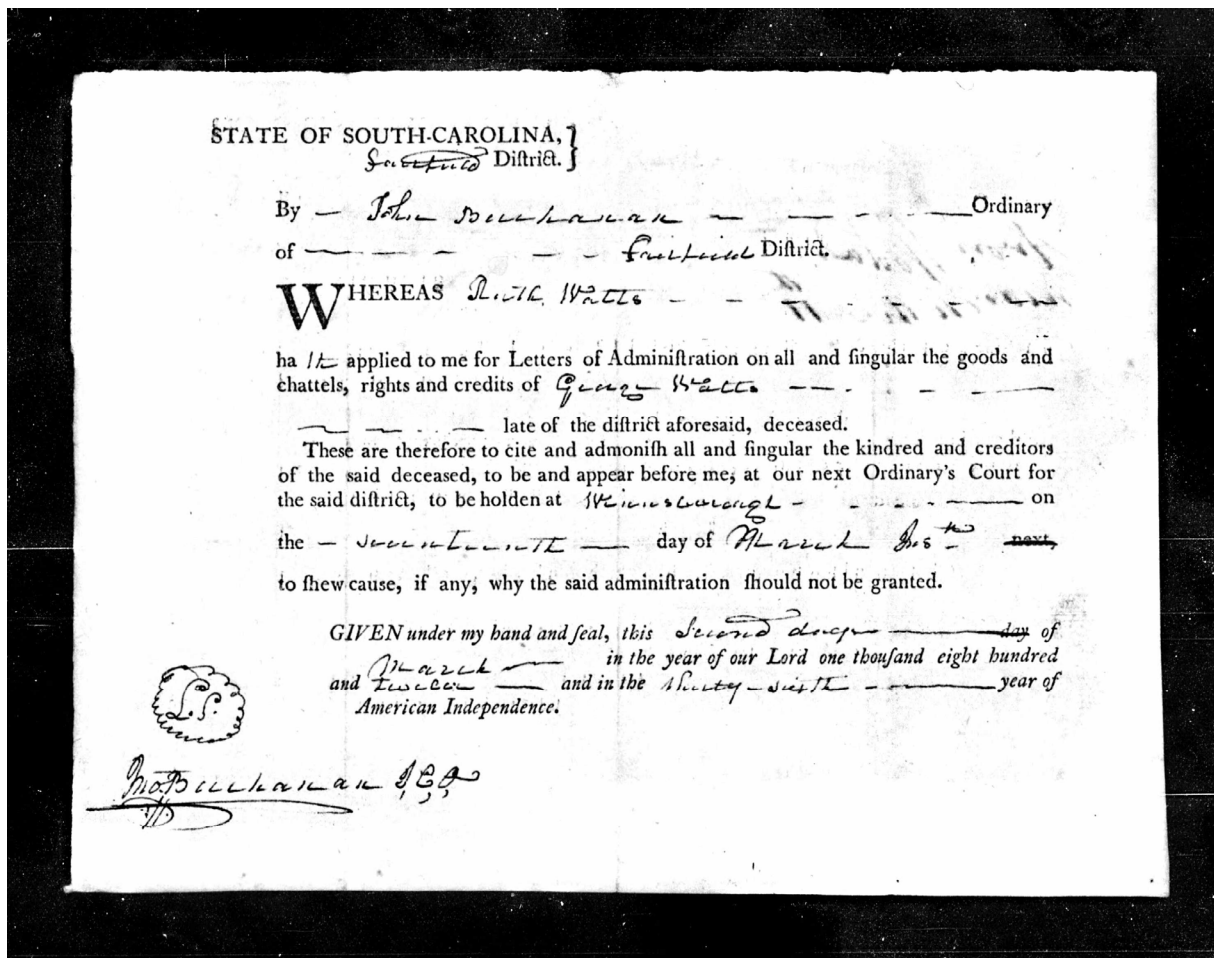 STATE OF SOUTH-CAROLINA, }
Fairfield Diſtrict.
By — John Buchanan — — - - — Ordinary
of — — — - — - Fairfield Diſtrict.
WHEREAS Ruth Watts - - - - -
ha th applied to me for Letters of Adminiſtration on all and ſingular the goods and
chattels, rights and credits of George Watts — - - - —
— — - — late of the diſtrict aforeſaid, deceaſed.
Theſe are therefore to cite and admoniſh all and ſingular the kindred and creditors
of the ſaid deceaſed, to be and appear before me, at our next Ordinary's Court for
the ſaid diſtrict, to be holden at Winnsborough - - - - — on
the — seventeenth — day of March Inst next,
to ſhew cauſe, if any, why the ſaid adminiſtration ſhould not be granted.
GIVEN under my hand and ſeal, this Second day — day of
March — in the year of our Lord one thouſand eight hundred
and twelve — and in the thirty-sixth - — year of
American Independence.
L.S.
Jno Buchanan